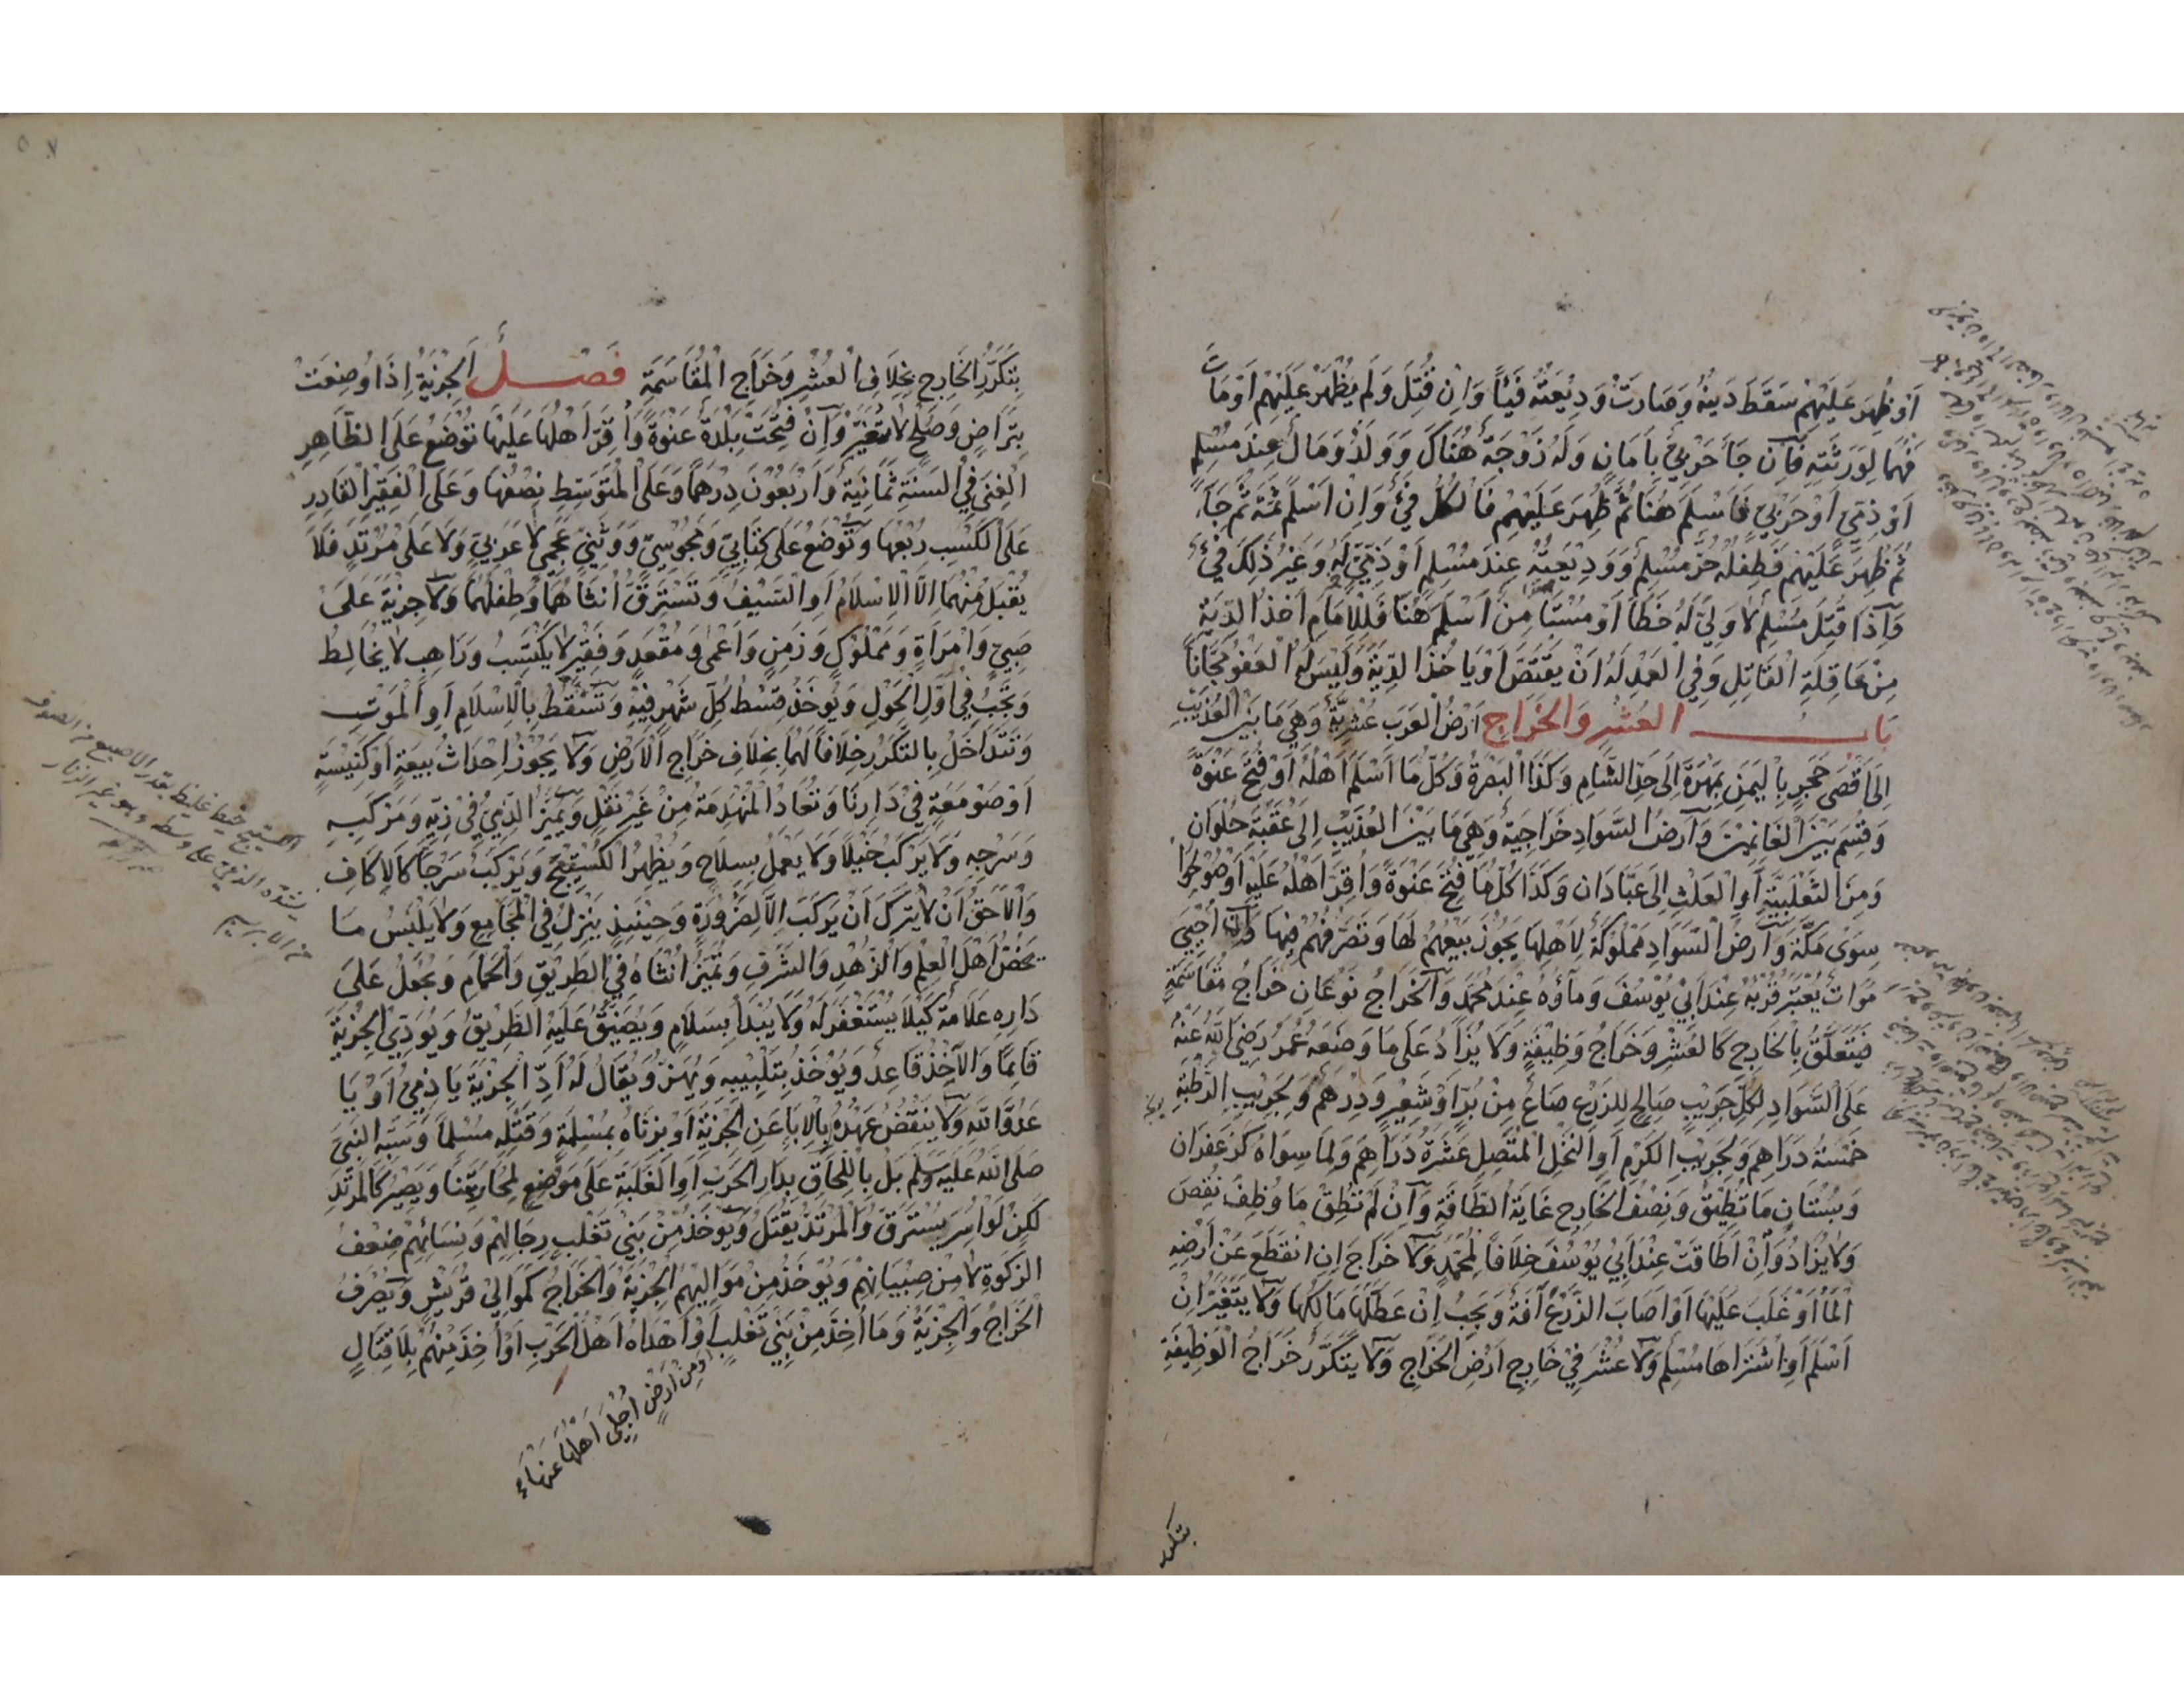 اَوْ ظُهِرَ عَلَيْهِمْ سَقَطَ دَيْنُهُ وَصَارَتْ وَدِيْعَتُهُ فَيْئاً وَاِنْ قُتِلَ وَلَمْ يُظْهَرْ عَلَيْهِمْ اَوْ مَاتَ
فَهُمَا لِوَرَثَتِهِ فَاِنْ جَاءَ حَرْبِيٌّ بِاَمَانٍ وَلَهُ زَوْجَةٌ هُنَاكَ وَوَلَدٌ وَمَالٌ عِنْدَ مُسْلِمٍ
اَوْ ذِمِّيٍّ اَوْ حَرْبِيٍّ فَاَسْلَمَ هُنَا ثُمَّ ظُهِرَ عَلَيْهِمْ فَالْكُلُّ فَيْءٌ وَاِنْ اَسْلَمَ ثَمَّةَ ثُمَّ جَاءَ
ثُمَّ ظُهِرَ عَلَيْهِمْ فَطِفْلُهُ حُرٌّ مُسْلِمٌ وَوَدِيْعَتُهُ عِنْدَ مُسْلِمٍ اَوْ ذِمِّيٍّ لَهُ وَغَيْرُ ذٰلِكَ فَيْءٌ
وَاِذَا قُتِلَ مُسْلِمٌ لَا وَلِيَّ لَهُ خَطَاً اَوْ مُسْتَأْمِنٌ اَسْلَمَ هُنَا فَلِلْاِمَامِ اَخْذُ الدِّيَةِ
مِنْ عَاقِلَةِ الْقَاتِلِ وَفِي الْعَمْدِ لَهُ اَنْ يَقْتَصَّ اَوْ يَاْخُذَ الدِّيَةَ وَلَيْسَ لَهُ الْعَفْوُ مَجَّاناً
بَابُ الْعُشْرِ وَالْخَرَاجِ اَرْضُ الْعَرَبِ عُشْرِيَّةٌ وَهِيَ مَا بَيْنَ الْعُذَيْبِ
اِلَى اَقْصَى حَجَرٍ بِالْيَمَنِ بِمَهْرَةَ اِلَى حَدِّ الشَّامِ وَكَذَا الْبَصْرَةُ وَكُلُّ مَا اَسْلَمَ اَهْلُهُ اَوْ فُتِحَ عَنْوَةً
وَقُسِمَ بَيْنَ الْغَانِمِيْنَ وَاَرْضُ السَّوَادِ خَرَاجِيَّةٌ وَهِيَ مَا بَيْنَ الْعُذَيْبِ اِلَى عَقَبَةِ حُلْوَانَ
وَمِنَ الثَّعْلَبِيَّةِ اَوِ الْعَلْثِ اِلَى عَبَّادَانَ وَكَذَا كُلُّ مَا فُتِحَ عَنْوَةً وَاُقِرَّ اَهْلُهُ عَلَيْهِ اَوْ صُوْلِحُوا
سِوَى مَكَّةَ وَاَرْضُ السَّوَادِ مَمْلُوْكَةٌ لِاَهْلِهَا يَجُوْزُ بَيْعُهُمْ لَهَا وَتَصَرُّفُهُمْ فِيْهَا وَاِنْ اُحْيِيَ
مَوَاتٌ يُعْتَبَرُ قُرْبُهُ عِنْدَ اَبِيْ يُوْسُفَ وَمَاؤُهُ عِنْدَ مُحَمَّدٍ وَالْخَرَاجُ نَوْعَانِ خَرَاجُ مُقَاسَمَةٍ
فَيَتَعَلَّقُ بِالْخَارِجِ كَالْعُشْرِ وَخَرَاجُ وَظِيْفَةٍ وَلَا يُزَادُ عَلَى مَا وَضَعَهُ عُمَرُ رَضِيَ اللّٰهُ عَنْهُ
عَلَى السَّوَادِ لِكُلِّ جَرِيْبٍ صَالِحٍ لِلزَّرْعِ صَاعٌ مِنْ بُرٍّ اَوْ شَعِيْرٍ وَدِرْهَمٌ وَلِجَرِيْبِ الرَّطْبَةِ
خَمْسَةُ دَرَاهِمَ وَلِجَرِيْبِ الْكَرْمِ اَوِ النَّخْلِ الْمُتَّصِلِ عَشَرَةُ دَرَاهِمَ وَلِمَا سِوَاهُ كَزَعْفَرَانٍ
وَبُسْتَانٍ مَا تُطِيْقُ وَنِصْفُ الْخَارِجِ غَايَةُ الطَّاقَةِ وَاِنْ لَمْ تُطِقْ مَا وُظِّفَ نُقِصَ
وَلَا يُزَادُ وَاِنْ اَطَاقَتْ عِنْدَ اَبِيْ يُوْسُفَ خِلَافاً لِمُحَمَّدٍ وَلَا خَرَاجَ اِنِ انْقَطَعَ عَنْ اَرْضِهِ
الْمَاءُ اَوْ غَلَبَ عَلَيْهَا اَوْ اَصَابَ الزَّرْعَ اٰفَةٌ وَيَجِبُ اِنْ عَطَّلَهَا مَالِكُهَا وَلَا يَتَغَيَّرُ اِنْ
اَسْلَمَ اَوِ اشْتَرَاهَا مُسْلِمٌ وَلَا عُشْرَ فِيْ خَارِجِ اَرْضِ الْخَرَاجِ وَلَا يَتَكَرَّرُ خَرَاجُ الْوَظِيْفَةِ
بتكرر
بِتَكَرُّرِ الْخَارِجِ بِخِلَافِ الْعُشْرِ وَخَرَاجِ الْمُقَاسَمَةِ فَصْلٌ اَلْجِزْيَةُ اِذَا وُضِعَتْ
بِتَرَاضٍ وَصُلْحٍ لَا تُغَيَّرُ وَاِنْ فُتِحَتْ بَلْدَةٌ عَنْوَةً وَاُقِرَّ اَهْلُهَا عَلَيْهَا تُوْضَعُ عَلَى الظَّاهِرِ
الْغِنَى فِي السَّنَةِ ثَمَانِيَةٌ وَاَرْبَعُوْنَ دِرْهَماً وَعَلَى الْمُتَوَسِّطِ نِصْفُهَا وَعَلَى الْفَقِيْرِ الْقَادِرِ
عَلَى الْكَسْبِ رُبْعُهَا وَتُوْضَعُ عَلَى كِتَابِيٍّ وَمَجُوْسِيٍّ وَوَثَنِيٍّ عَجَمِيٍّ لَا عَرَبِيٍّ وَلَا عَلَى مُرْتَدٍّ فَلَا
يُقْبَلُ مِنْهُمَا اِلَّا الْاِسْلَامُ اَوِ السَّيْفُ وَتُسْتَرَقُّ اُنْثَاهُمَا وَطِفْلُهُمَا وَلَا جِزْيَةَ عَلَى
صَبِيٍّ وَامْرَاَةٍ وَمَمْلُوْكٍ وَزَمِنٍ وَاَعْمَى وَمُقْعَدٍ وَفَقِيْرٍ لَا يَكْتَسِبُ وَرَاهِبٍ لَا يُخَالِطُ
وَتَجِبُ فِيْ اَوَّلِ الْحَوْلِ وَيُوْخَذُ قِسْطُ كُلِّ شَهْرٍ فِيْهِ وَتَسْقُطُ بِالْاِسْلَامِ اَوِ الْمَوْتِ
وَتَتَدَاخَلُ بِالتَّكَرُّرِ خِلَافاً لَهُمَا بِخِلَافِ خَرَاجِ الْاَرْضِ وَلَا يَجُوْزُ اِحْدَاثُ بِيْعَةٍ اَوْ كَنِيْسَةٍ
اَوْ صَوْمَعَةٍ فِيْ دَارِنَا وَتُعَادُ الْمُنْهَدِمَةُ مِنْ غَيْرِ نَقْلٍ وَيُمَيَّزُ الذِّمِّيُّ فِيْ زِيِّهِ وَمَرْكَبِهِ
وَسَرْجِهِ وَلَا يَرْكَبُ خَيْلاً وَلَا يَعْمَلُ بِسِلَاحٍ وَيُظْهِرُ الْكُسْتِيْجَ وَيَرْكَبُ سَرْجاً كَالْاِكَافِ
وَالْاَحَقُّ اَنْ لَا يُتْرَكَ اَنْ يَرْكَبَ اِلَّا لِضَرُوْرَةٍ وَحِيْنَئِذٍ يَنْزِلُ فِي الْمَجَامِعِ وَلَا يَلْبَسُ مَا
يَخُصُّ اَهْلَ الْعِلْمِ وَالزُّهْدِ وَالشَّرَفِ وَتُمَيَّزُ اُنْثَاهُ فِي الطَّرِيْقِ وَالْحَمَّامِ وَيُجْعَلُ عَلَى
دَارِهِ عَلَامَةٌ كَيْلَا يُسْتَغْفَرَ لَهُ وَلَا يُبْدَأُ بِسَلَامٍ وَيُضَيَّقُ عَلَيْهِ الطَّرِيْقُ وَيُوَدِّي الْجِزْيَةَ
قَائِماً وَالْاٰخِذُ قَاعِدٌ وَيُوْخَذُ بِتَلْبِيْبِهِ وَيُهَزُّ وَيُقَالُ لَهُ اَدِّ الْجِزْيَةَ يَا ذِمِّيُّ اَوْ يَا
عَدُوَّ اللّٰهِ وَلَا يَنْتَقِضُ عَهْدُهُ بِالْاِبَاءِ عَنِ الْجِزْيَةِ اَوْ بِزِنَاهُ بِمُسْلِمَةٍ وَقَتْلِهِ مُسْلِماً وَسَبِّهِ النَّبِيَّ
صَلَّى اللّٰهُ عَلَيْهِ وَسَلَّمَ بَلْ بِاللِّحَاقِ بِدَارِ الْحَرْبِ اَوِ الْغَلَبَةِ عَلَى مَوْضِعٍ لِمُحَارَبَتِنَا وَيَصِيْرُ كَالْمُرْتَدِّ
لٰكِنْ لَوْ اُسِرَ يُسْتَرَقُّ وَالْمُرْتَدُّ يُقْتَلُ وَيُوْخَذُ مِنْ بَنِيْ تَغْلِبَ رِجَالِهِمْ وَنِسَائِهِمْ ضِعْفُ
الزَّكٰوةِ لَا مِنْ صِبْيَانِهِمْ وَيُوْخَذُ مِنْ مَوَالِيْهِمُ الْجِزْيَةُ وَالْخَرَاجُ كَمَوَالِيْ قُرَيْشٍ وَيُصْرَفُ
الْخَرَاجُ وَالْجِزْيَةُ وَمَا اُخِذَ مِنْ بَنِيْ تَغْلِبَ اَوْ اَهْدَاهُ اَهْلُ الْحَرْبِ اَوْ اُخِذَ مِنْهُمْ بِلَا قِتَالٍ
اَوْ مِنْ اَرْضٍ اُجْلِيَ اَهْلُهَا عَنْهَا
الكستيج خيط غليظ بقدر الاصبع من الصوف
يشده الذمي على وسطه وهو غير الزنار
من الابريسم